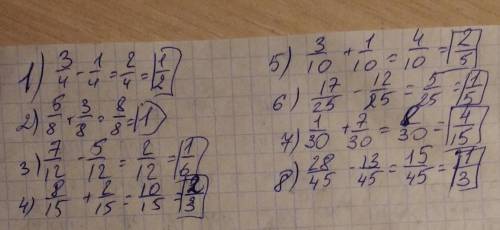 1) 3/4 - 1/4 = 2/4 = 1/2
2) 5/8 + 3/8 = 8/8 = 1
3) 7/12 - 5/12 = 2/12 = 1/6
4) 8/15 + 2/15 = 10/15 = 2/3
5) 3/10 + 1/10 = 4/10 = 2/5
6) 17/25 - 12/25 = 5/25 = 1/5
7) 1/30 + 7/30 = 8/30 = 4/15
8) 28/45 - 13/45 = 15/45 = 1/3